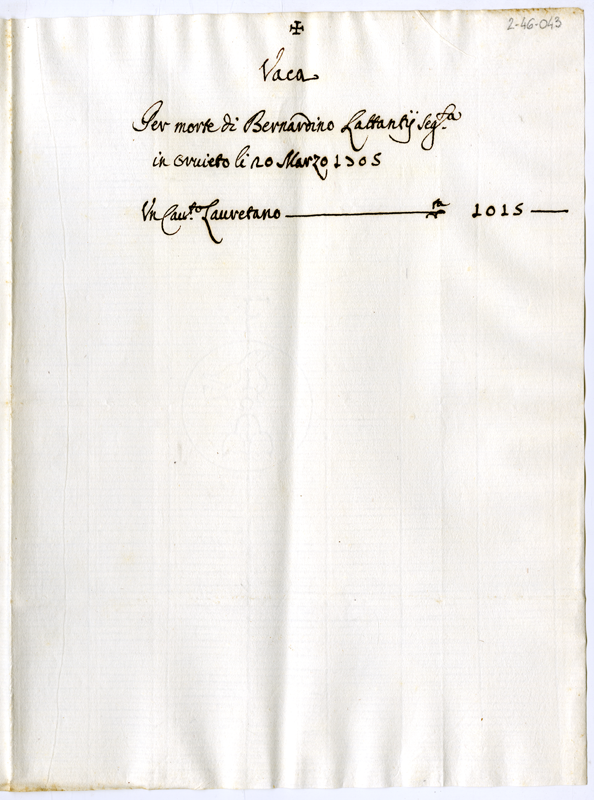 2-46-043
✠
Vaca
Per morte di Bernardino Lattantij seg.ta
in Orvieto li 20 Marzo 1705
Un Cav.to Lauretano — 1015 —